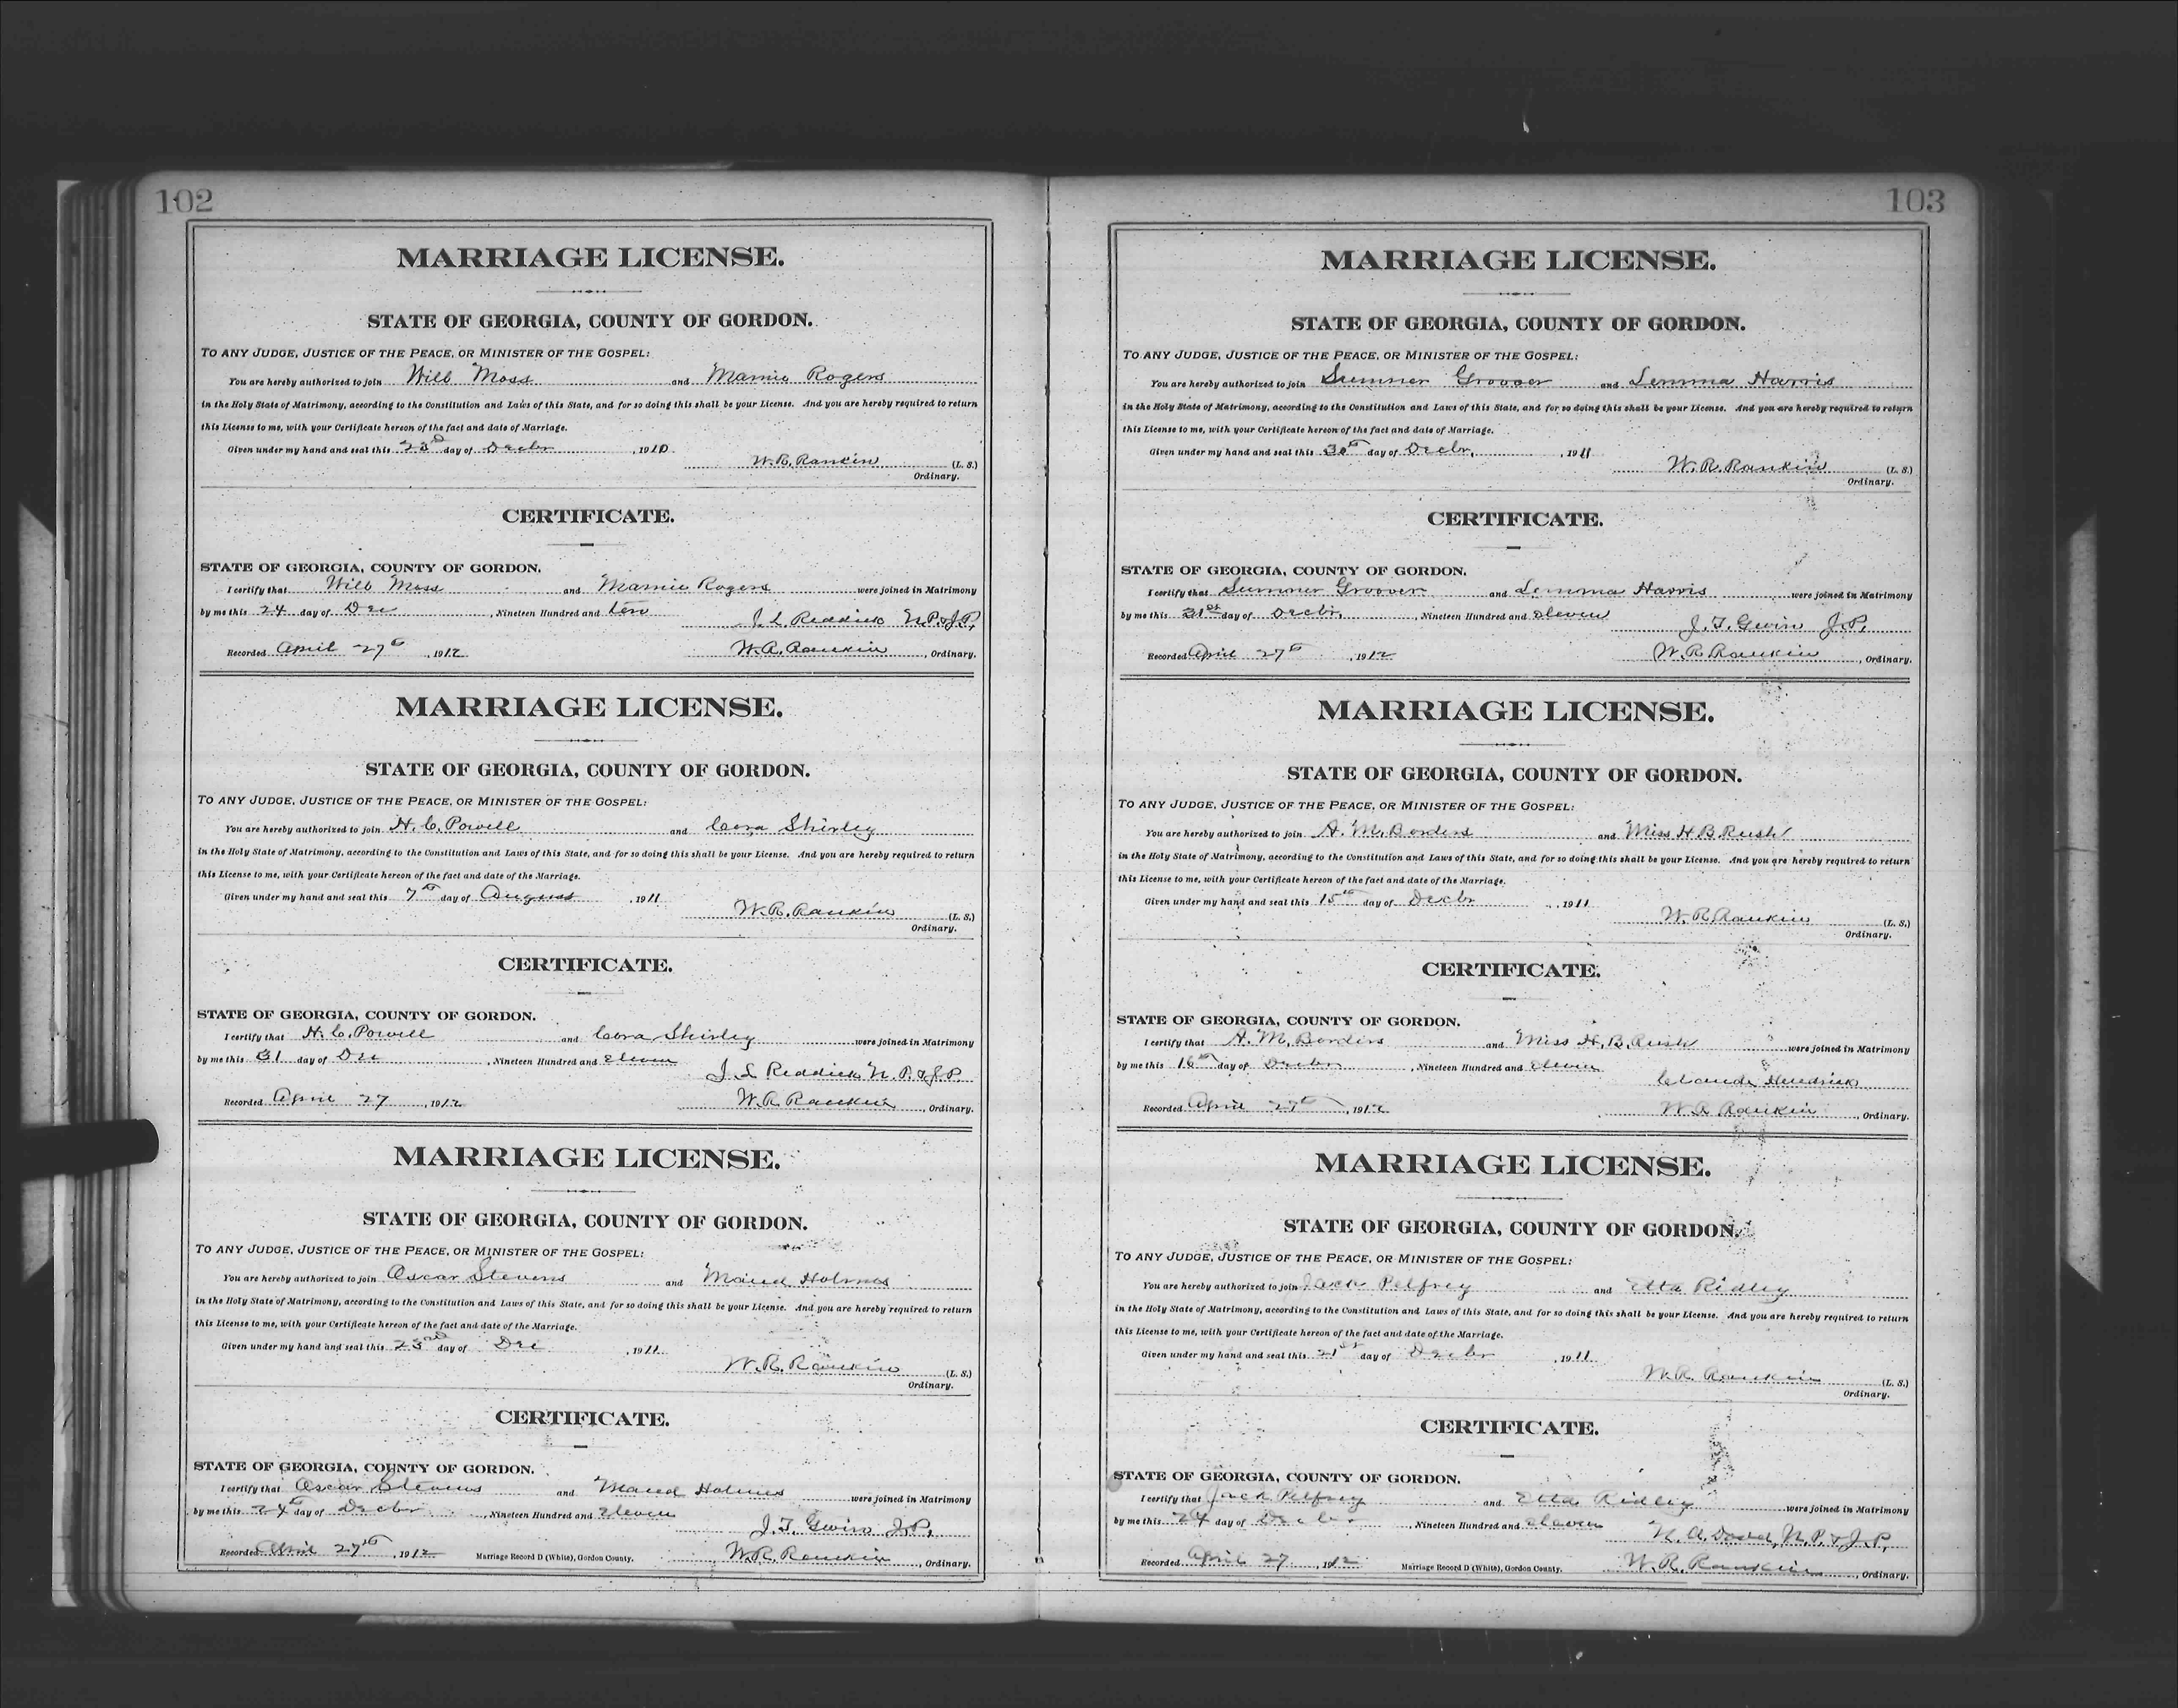 102
MARRIAGE LICENSE.
STATE OF GEORGIA, COUNTY OF GORDON.
TO ANY JUDGE, JUSTICE OF THE PEACE, OR MINISTER OF THE GOSPEL:
You are hereby authorized to join Will Moss and Mamie Rogers
in the Holy State of Matrimony, according to the Constitution and Laws of this State, and for so doing this shall be your License. And you are hereby required to return
this License to me, with your Certificate hereon of the fact and date of Marriage.
Given under my hand and seal this 23d day of Decbr, 1910
W.R. Rankin (L. S.)
Ordinary.
CERTIFICATE.
STATE OF GEORGIA, COUNTY OF GORDON.
I certify that Will Moss and Mamie Rogers were joined in Matrimony
by me this 24 day of Dec, Nineteen Hundred and ten
J. L. Reddick N.P.&J.P.
Recorded April 27th, 1912 W.R. Rankin, Ordinary.
MARRIAGE LICENSE.
STATE OF GEORGIA, COUNTY OF GORDON.
TO ANY JUDGE, JUSTICE OF THE PEACE, OR MINISTER OF THE GOSPEL:
You are hereby authorized to join H. C. Powell and Cora Shirley
in the Holy State of Matrimony, according to the Constitution and Laws of this State, and for so doing this shall be your License. And you are hereby required to return
this License to me, with your Certificate hereon of the fact and date of the Marriage.
Given under my hand and seal this 7th day of August, 1911
W.R. Rankin (L. S.)
Ordinary.
CERTIFICATE.
STATE OF GEORGIA, COUNTY OF GORDON.
I certify that H. C. Powell and Cora Shirley were joined in Matrimony
by me this 31 day of Dec, Nineteen Hundred and eleven
J. L. Reddick N. P. & J. P.
Recorded April 27, 1912 W.R. Rankin, Ordinary.
MARRIAGE LICENSE.
STATE OF GEORGIA, COUNTY OF GORDON.
TO ANY JUDGE, JUSTICE OF THE PEACE, OR MINISTER OF THE GOSPEL:
You are hereby authorized to join Oscar Stevens and Maud Holmes
in the Holy State of Matrimony, according to the Constitution and Laws of this State, and for so doing this shall be your License. And you are hereby required to return
this License to me, with your Certificate hereon of the fact and date of the Marriage.
Given under my hand and seal this 23rd day of Dec, 1911
W.R. Rankin (L. S.)
Ordinary.
CERTIFICATE.
STATE OF GEORGIA, COUNTY OF GORDON.
I certify that Oscar Stevens and Maud Holmes were joined in Matrimony
by me this 24th day of Decbr, Nineteen Hundred and Eleven
J. T. Gwin J.P.
Recorded April 27th, 1912 Marriage Record D (White), Gordon County. W.R. Rankin, Ordinary.
103
MARRIAGE LICENSE.
STATE OF GEORGIA, COUNTY OF GORDON.
TO ANY JUDGE, JUSTICE OF THE PEACE, OR MINISTER OF THE GOSPEL:
You are hereby authorized to join Sumner Groover and Lemma Harris
in the Holy State of Matrimony, according to the Constitution and Laws of this State, and for so doing this shall be your License. And you are hereby required to return
this License to me, with your Certificate hereon of the fact and date of Marriage.
Given under my hand and seal this 30th day of Decbr, 1911
W.R. Rankin (L. S.)
Ordinary.
CERTIFICATE.
STATE OF GEORGIA, COUNTY OF GORDON.
I certify that Sumner Groover and Lemma Harris were joined in Matrimony
by me this 31st day of Decbr, Nineteen Hundred and Eleven
J. T. Gwin J.P.
Recorded April 27th, 1912 W.R. Rankin, Ordinary.
MARRIAGE LICENSE.
STATE OF GEORGIA, COUNTY OF GORDON.
TO ANY JUDGE, JUSTICE OF THE PEACE, OR MINISTER OF THE GOSPEL:
You are hereby authorized to join A. M. Borders and Miss H B Rush
in the Holy State of Matrimony, according to the Constitution and Laws of this State, and for so doing this shall be your License. And you are hereby required to return
this License to me, with your Certificate hereon of the fact and date of the Marriage.
Given under my hand and seal this 15th day of Decbr, 1911
W. R. Rankin (L. S.)
Ordinary.
CERTIFICATE.
STATE OF GEORGIA, COUNTY OF GORDON.
I certify that A. M. Borders and Miss H. B. Rush were joined in Matrimony
by me this 16th day of Decbr, Nineteen Hundred and Eleven
Claude Hendrick
Recorded April 27th, 1912 W R Rankin, Ordinary.
MARRIAGE LICENSE.
STATE OF GEORGIA, COUNTY OF GORDON.
TO ANY JUDGE, JUSTICE OF THE PEACE, OR MINISTER OF THE GOSPEL:
You are hereby authorized to join Jack Pelfrey and Etta Ridley
in the Holy State of Matrimony, according to the Constitution and Laws of this State, and for so doing this shall be your License. And you are hereby required to return
this License to me, with your Certificate hereon of the fact and date of the Marriage.
Given under my hand and seal this 21st day of Decbr, 1911
W.R. Rankin (L. S.)
Ordinary.
CERTIFICATE.
STATE OF GEORGIA, COUNTY OF GORDON.
I certify that Jack Pelfrey and Etta Ridley were joined in Matrimony
by me this 24 day of Decbr, Nineteen Hundred and eleven
N. A. Dodd, N. P. & J. P.
Recorded April 27, 1912 Marriage Record D (White), Gordon County. W. R. Rankin, Ordinary.